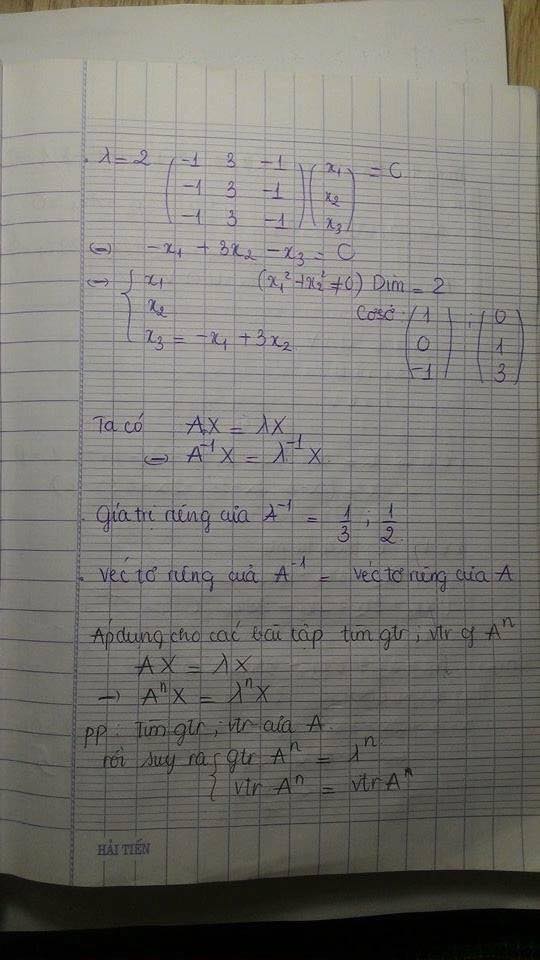 . λ = 2 ( -1 3 -1 ) ( x₁ ) = 0
( -1 3 -1 ) ( x₂ )
( -1 3 -1 ) ( x₃ )
⇔ -x₁ + 3x₂ - x₃ = 0
⇔ { x₁ (x₁² + x₂² ≠ 0) Dim = 2
x₂ Cơ sở ( 1 ) ; ( 0 )
x₃ = -x₁ + 3x₂ ( 0 ) ( 1 )
( -1 ) ( 3 )
Ta có AX = λX
⇔ A⁻¹X = λ⁻¹X
. Giá trị riêng của λ⁻¹ = 1/3 ; 1/2.
. Véc tơ riêng của A⁻¹ = Véc tơ riêng của A
Áp dụng cho các bài tập tìm gtr, vtr of Aⁿ
AX = λX
→ AⁿX = λⁿX
PP: Tìm gtr, vtr của A.
rồi suy ra { gtr Aⁿ = λⁿ
vtr Aⁿ = vtr Aⁿ
HẢI TIẾN